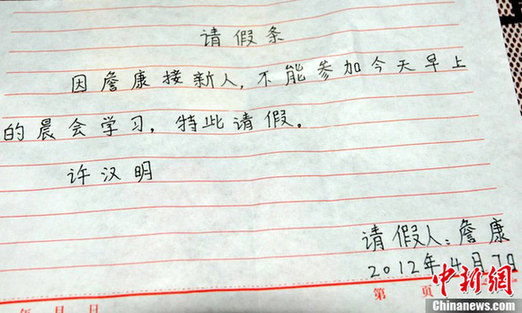 请假条
因詹康接新人,不能参加今天早上
的晨会学习,特此请假。
许汉明
请假人:詹康
2012年4月7日
第 页
中新网
年 月 日
Chinanews.com